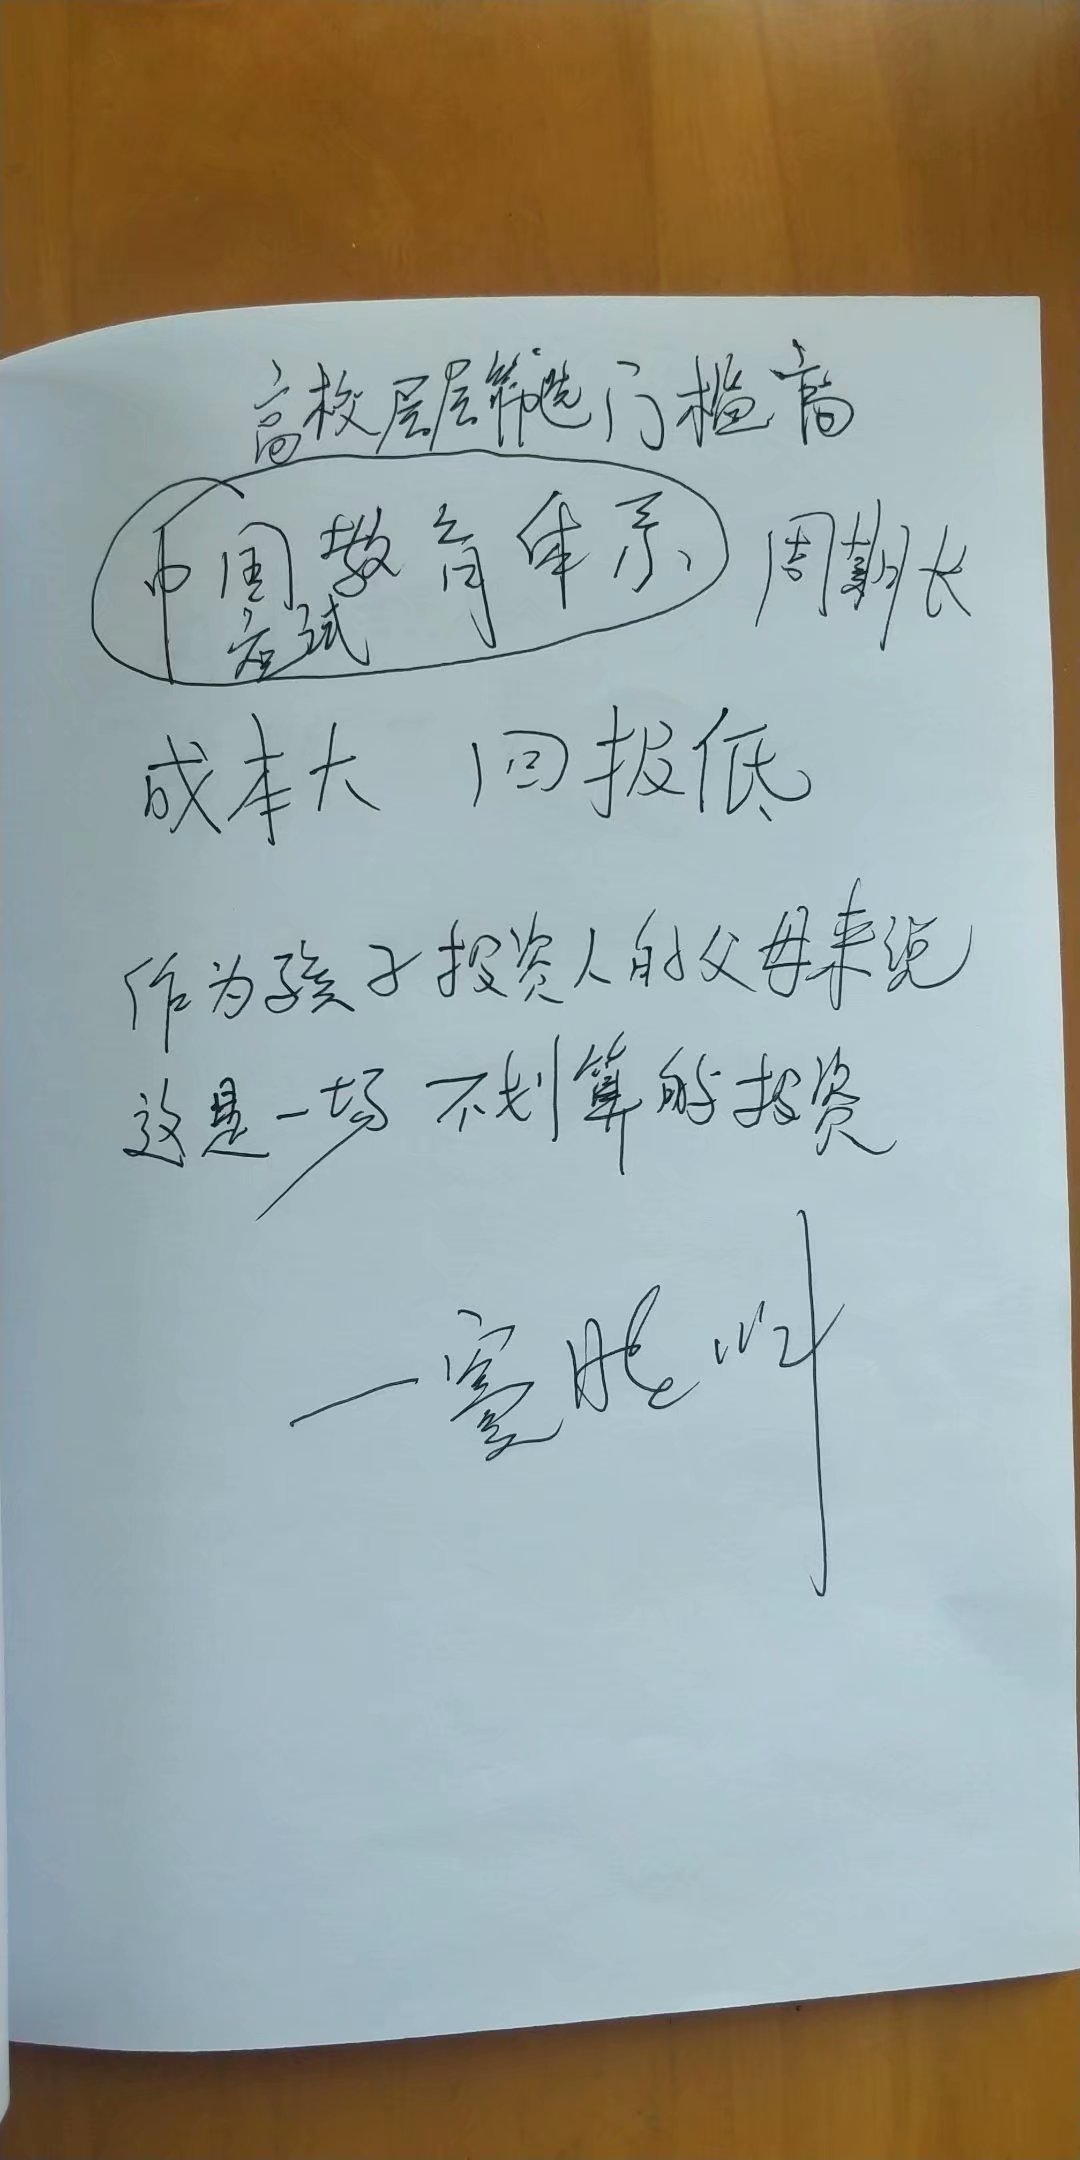 高校层层筛选门槛高
中国教育体系 周期长
应试
成本大 回报低
作为孩子投资人的父母来说
这是一场不划算的投资
一